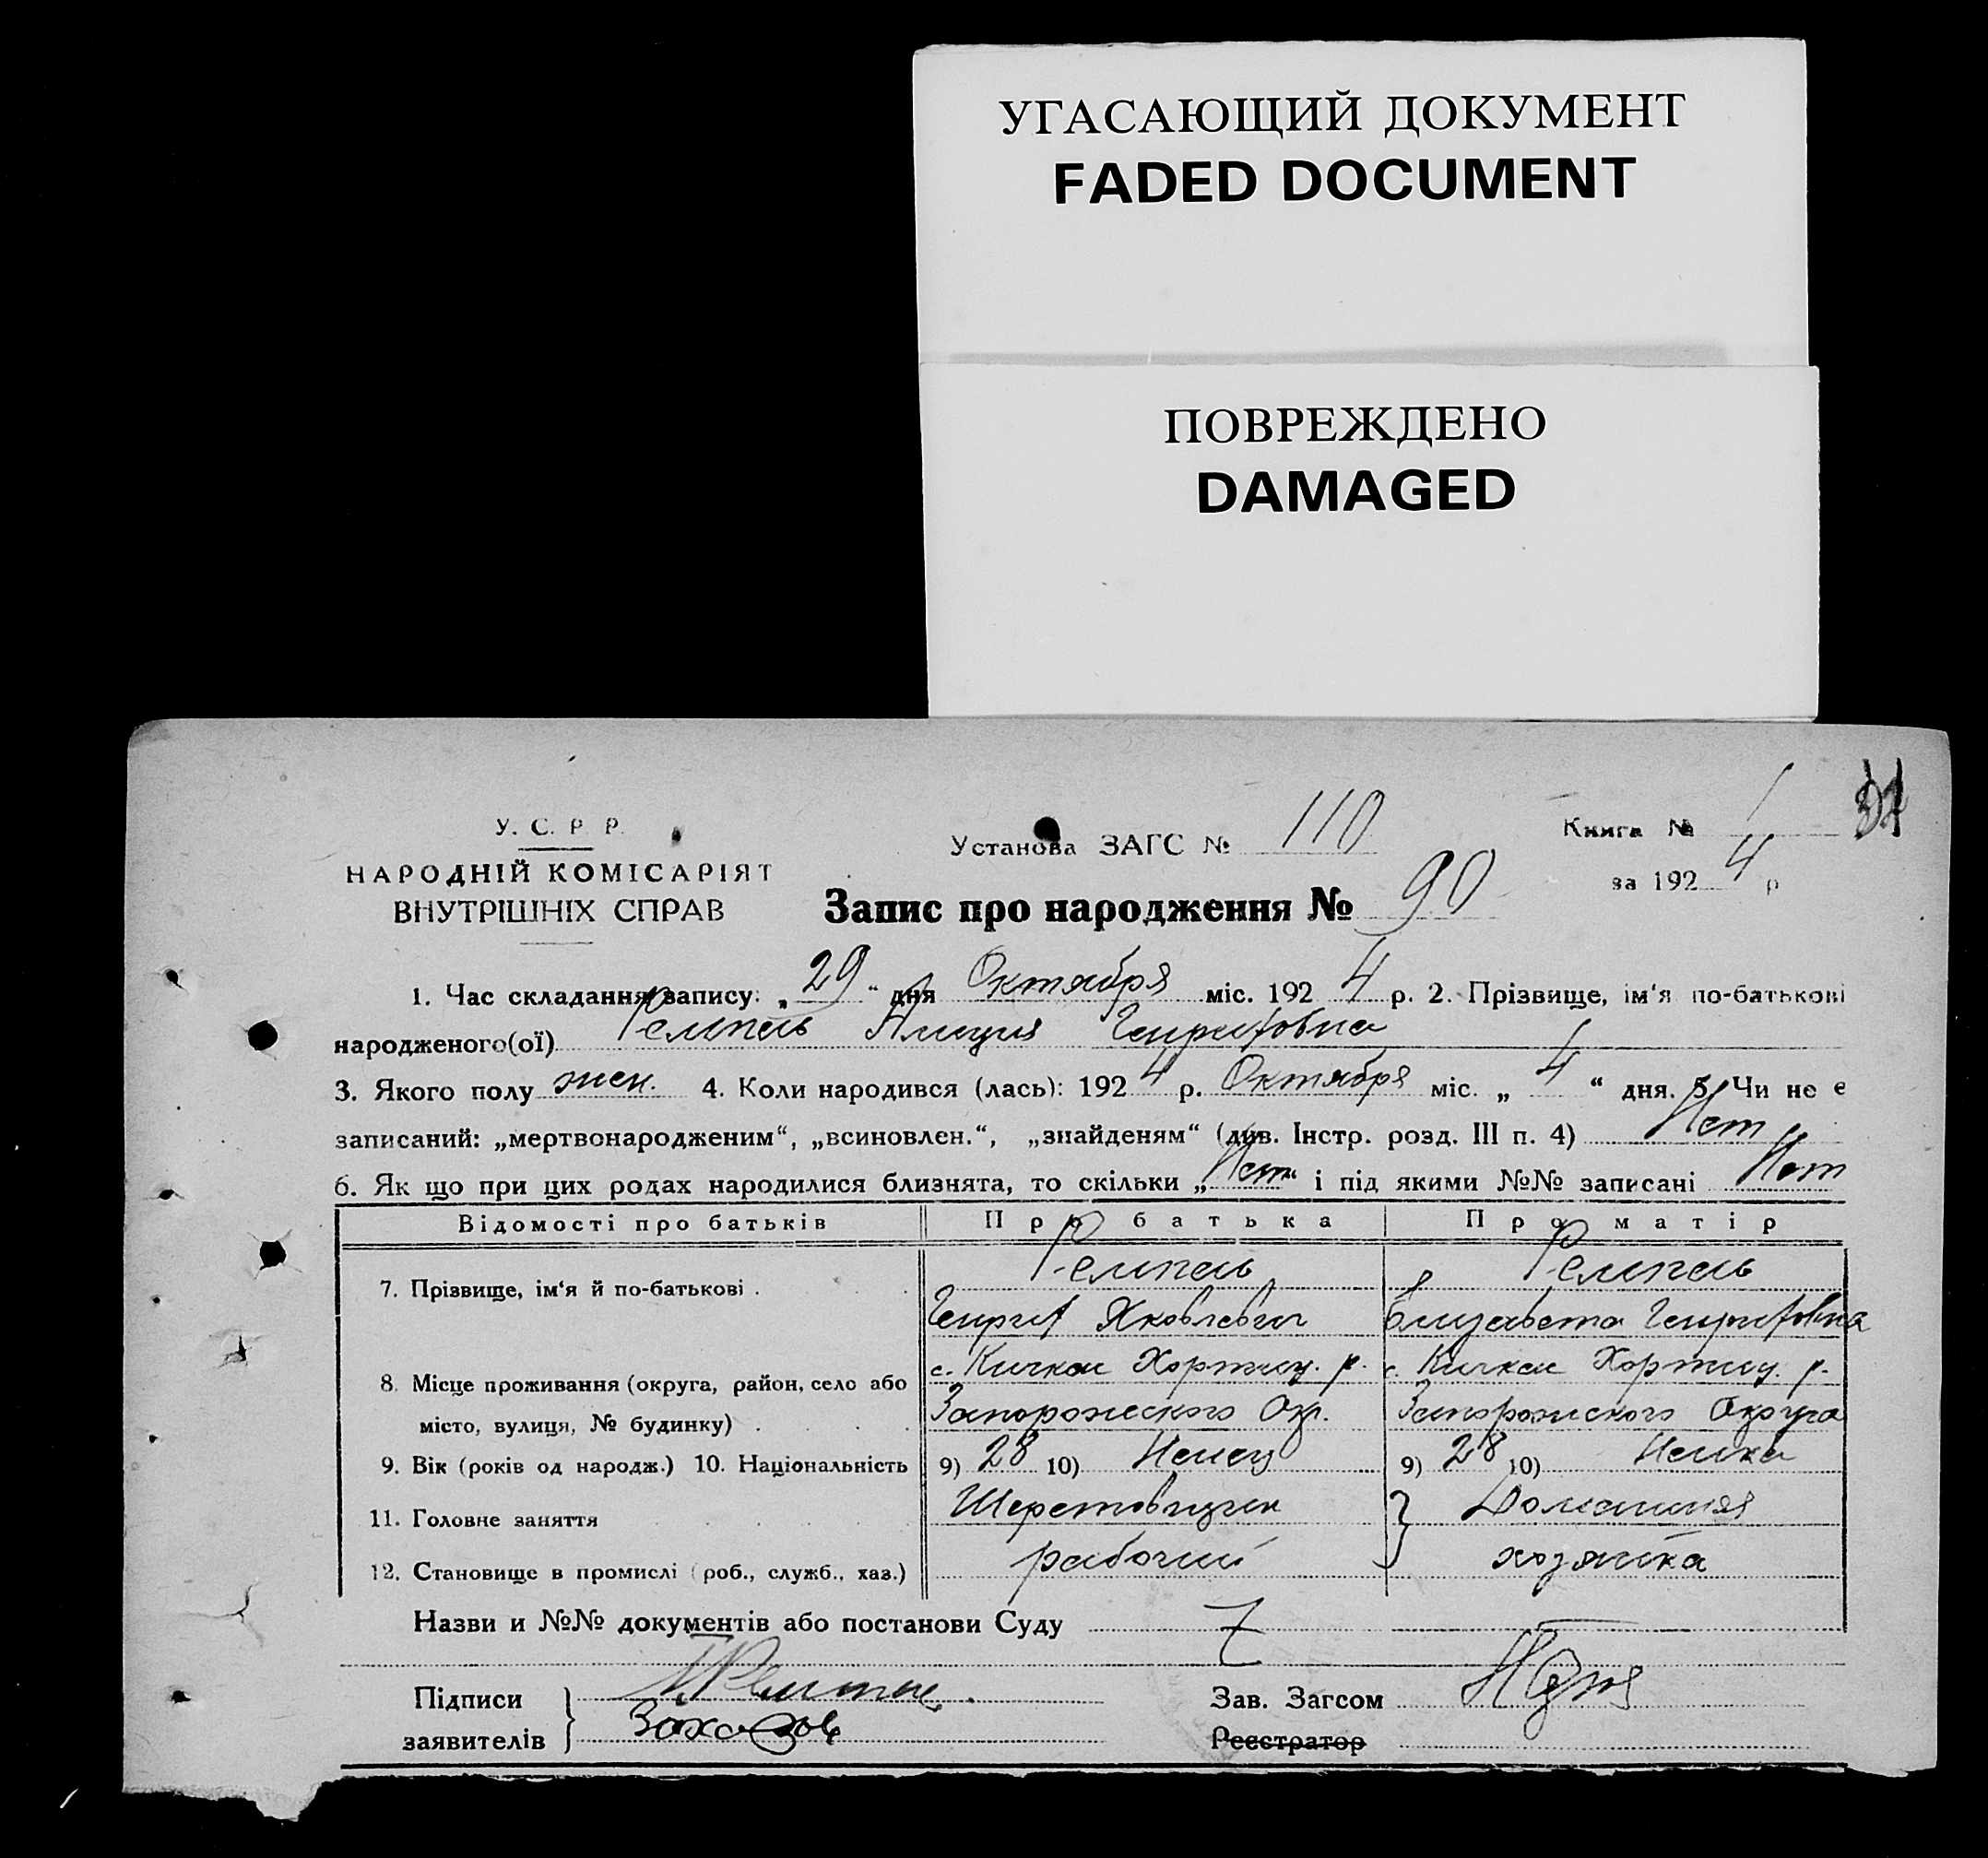 УГАСАЮЩИЙ ДОКУМЕНТ
FADED DOCUMENT
ПОВРЕЖДЕНО
DAMAGED
У. С. Р. Р.
НАРОДНІЙ КОМІСАРІЯТ
ВНУТРІШНІХ СПРАВ
Установа ЗАГС № 110
Книга № 1
за 1924 р
Запис про народження № 90
1. Час складання запису: „29“ дня Октября міс. 1924 р. 2. Прізвище, ім'я по-батькові
народженого(ої) Ремпель Алиция Генриховна
3. Якого полу жен. 4. Коли народився (лась): 1924 р. Октября міс. „4“ дня. 5. Чи не є
записаний: „мертвонародженим“, „всиновлен.“, „знайденям“ (див. Інстр. розд. III п. 4) Нет
6. Як що при цих родах народилися близнята, то скільки „Нет“ і під якими №№ записані Нет
Відомості про батьків Про батька Про матір
7. Прізвище, ім'я й по-батькові . Ремпель Ремпель
Генрих Яковлевич Елизавета Генриховна
8. Місце проживання (округа, район, село або с. Кичкас Хортиц. р. с. Кичкас Хортиц. р.
місто, вулиця, № будинку) Запорожского Окр. Запорожского Округа
9. Вік (років од народж.) 10. Національність 9) 28 10) Немец 9) 28 10) Немка
11. Головне заняття Шерстобитчик Домашняя
12. Становище в промислі (роб., служб., хаз.) рабочий хозяйка
Назви и №№ документів або постанови Суду
Підписи
заявителів
Зав. Загсом
Реєстратор